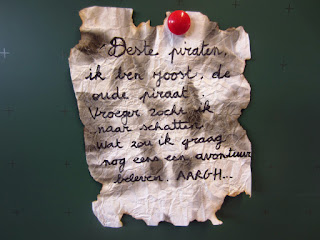 Beste piraten,
ik ben Joost, de
oude piraat.
Vroeger zocht ik
naar schatten.
Wat zou ik graag
nog eens een avontuur
beleven. AARGH...